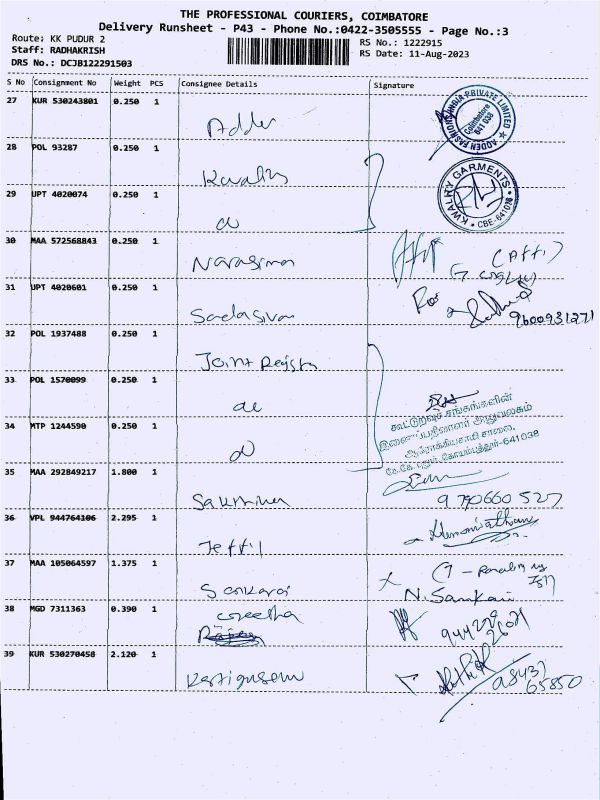 THE PROFESSIONAL COURIERS, COIMBATORE
Delivery Runsheet - P43 - Phone No.:0422-3505555 - Page No.:3
Route: KK PUDUR 2
RS No.: 1222915
Staff: RADHAKRISH
RS Date: 11-Aug-2023
DRS No.: DCJB122291503
S No Consignment No Weight PCS Consignee Details Signature
27 KUR 530243801 0.250 1
ADDER FASHIONS INDIA PRIVATE LIMITED
Coimbatore
641 038
28 POL 93287 0.250 1
Kwality
KWALITY GARMENTS
CBE-641038
29 UPT 4020074 0.250 1
30 MAA 572568843 0.250 1
Narasima
31 UPT 4020601 0.250 1
Sadasivan
9600931271
32 POL 1937488 0.250 1
Joint Regist
33 POL 1570099 0.250 1
கூட்டுறவுச் சங்கங்களின்
இணைப்பதிவாளர் அலுவலகம்
ஆரோக்கியசாமி சாலை,
கே.கே.புதூர், கோயம்புத்தூர்-641038
34 MTP 1244590 0.250 1
35 MAA 292849217 1.800 1
36 VPL 944764106 2.295 1
37 MAA 105064597 1.375 1
N. Sankari
38 MGD 7311363 0.390 1
Geetha
39 KUR 530270458 2.120 1
Karthik
98437
65850